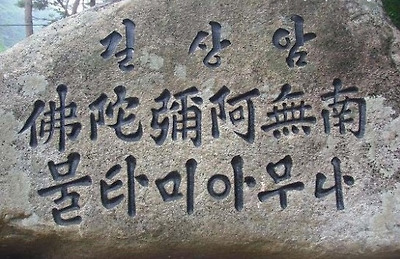 길상암
南無阿彌陀佛
나무아미타불